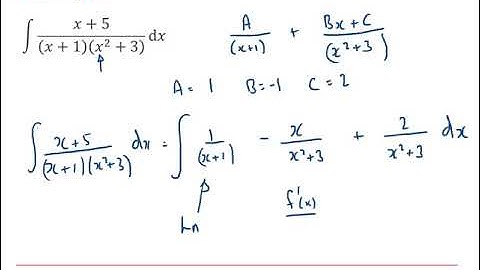 ∫ (x + 5)/((x + 1)(x² + 3)) dx    A/(x+1) + (Bx + C)/(x²+3)
A = 1    B = -1    C = 2
∫ (x+5)/((x+1)(x²+3)) dx = ∫ 1/(x+1) - x/(x²+3) + 2/(x²+3) dx
f'(x)
Ln